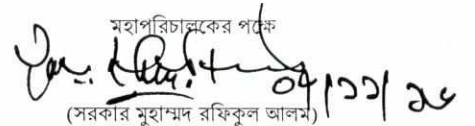 মহাপরিচালকের পক্ষে
(সরকার মুহাম্মদ রফিকুল আলম)